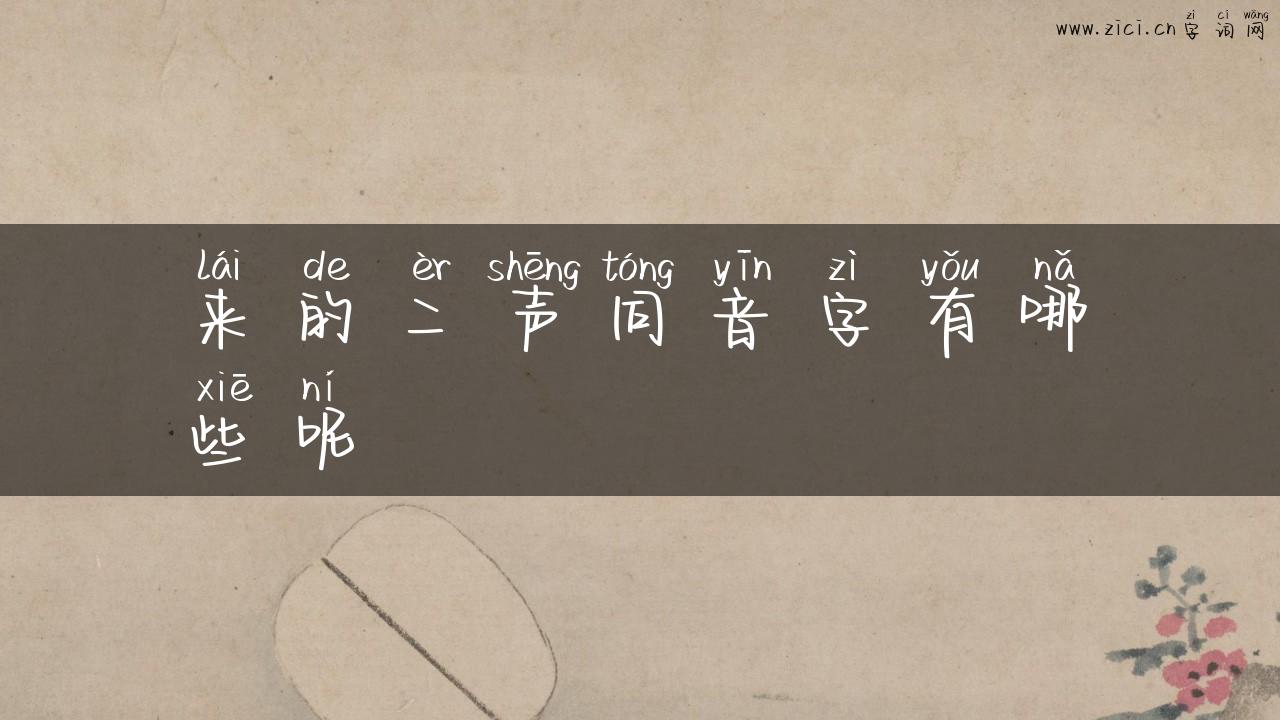 zì cí wǎng
www.zici.cn 字 词 网
lái de èr shēng tóng yīn zì yǒu nǎ
来 的 二 声 同 音 字 有 哪
xiē ní
些 呢